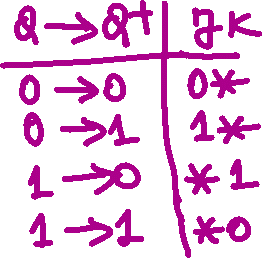 Q → Q+ JK
0 → 0 0*
0 → 1 1*
1 → 0 *1
1 → 1 *0